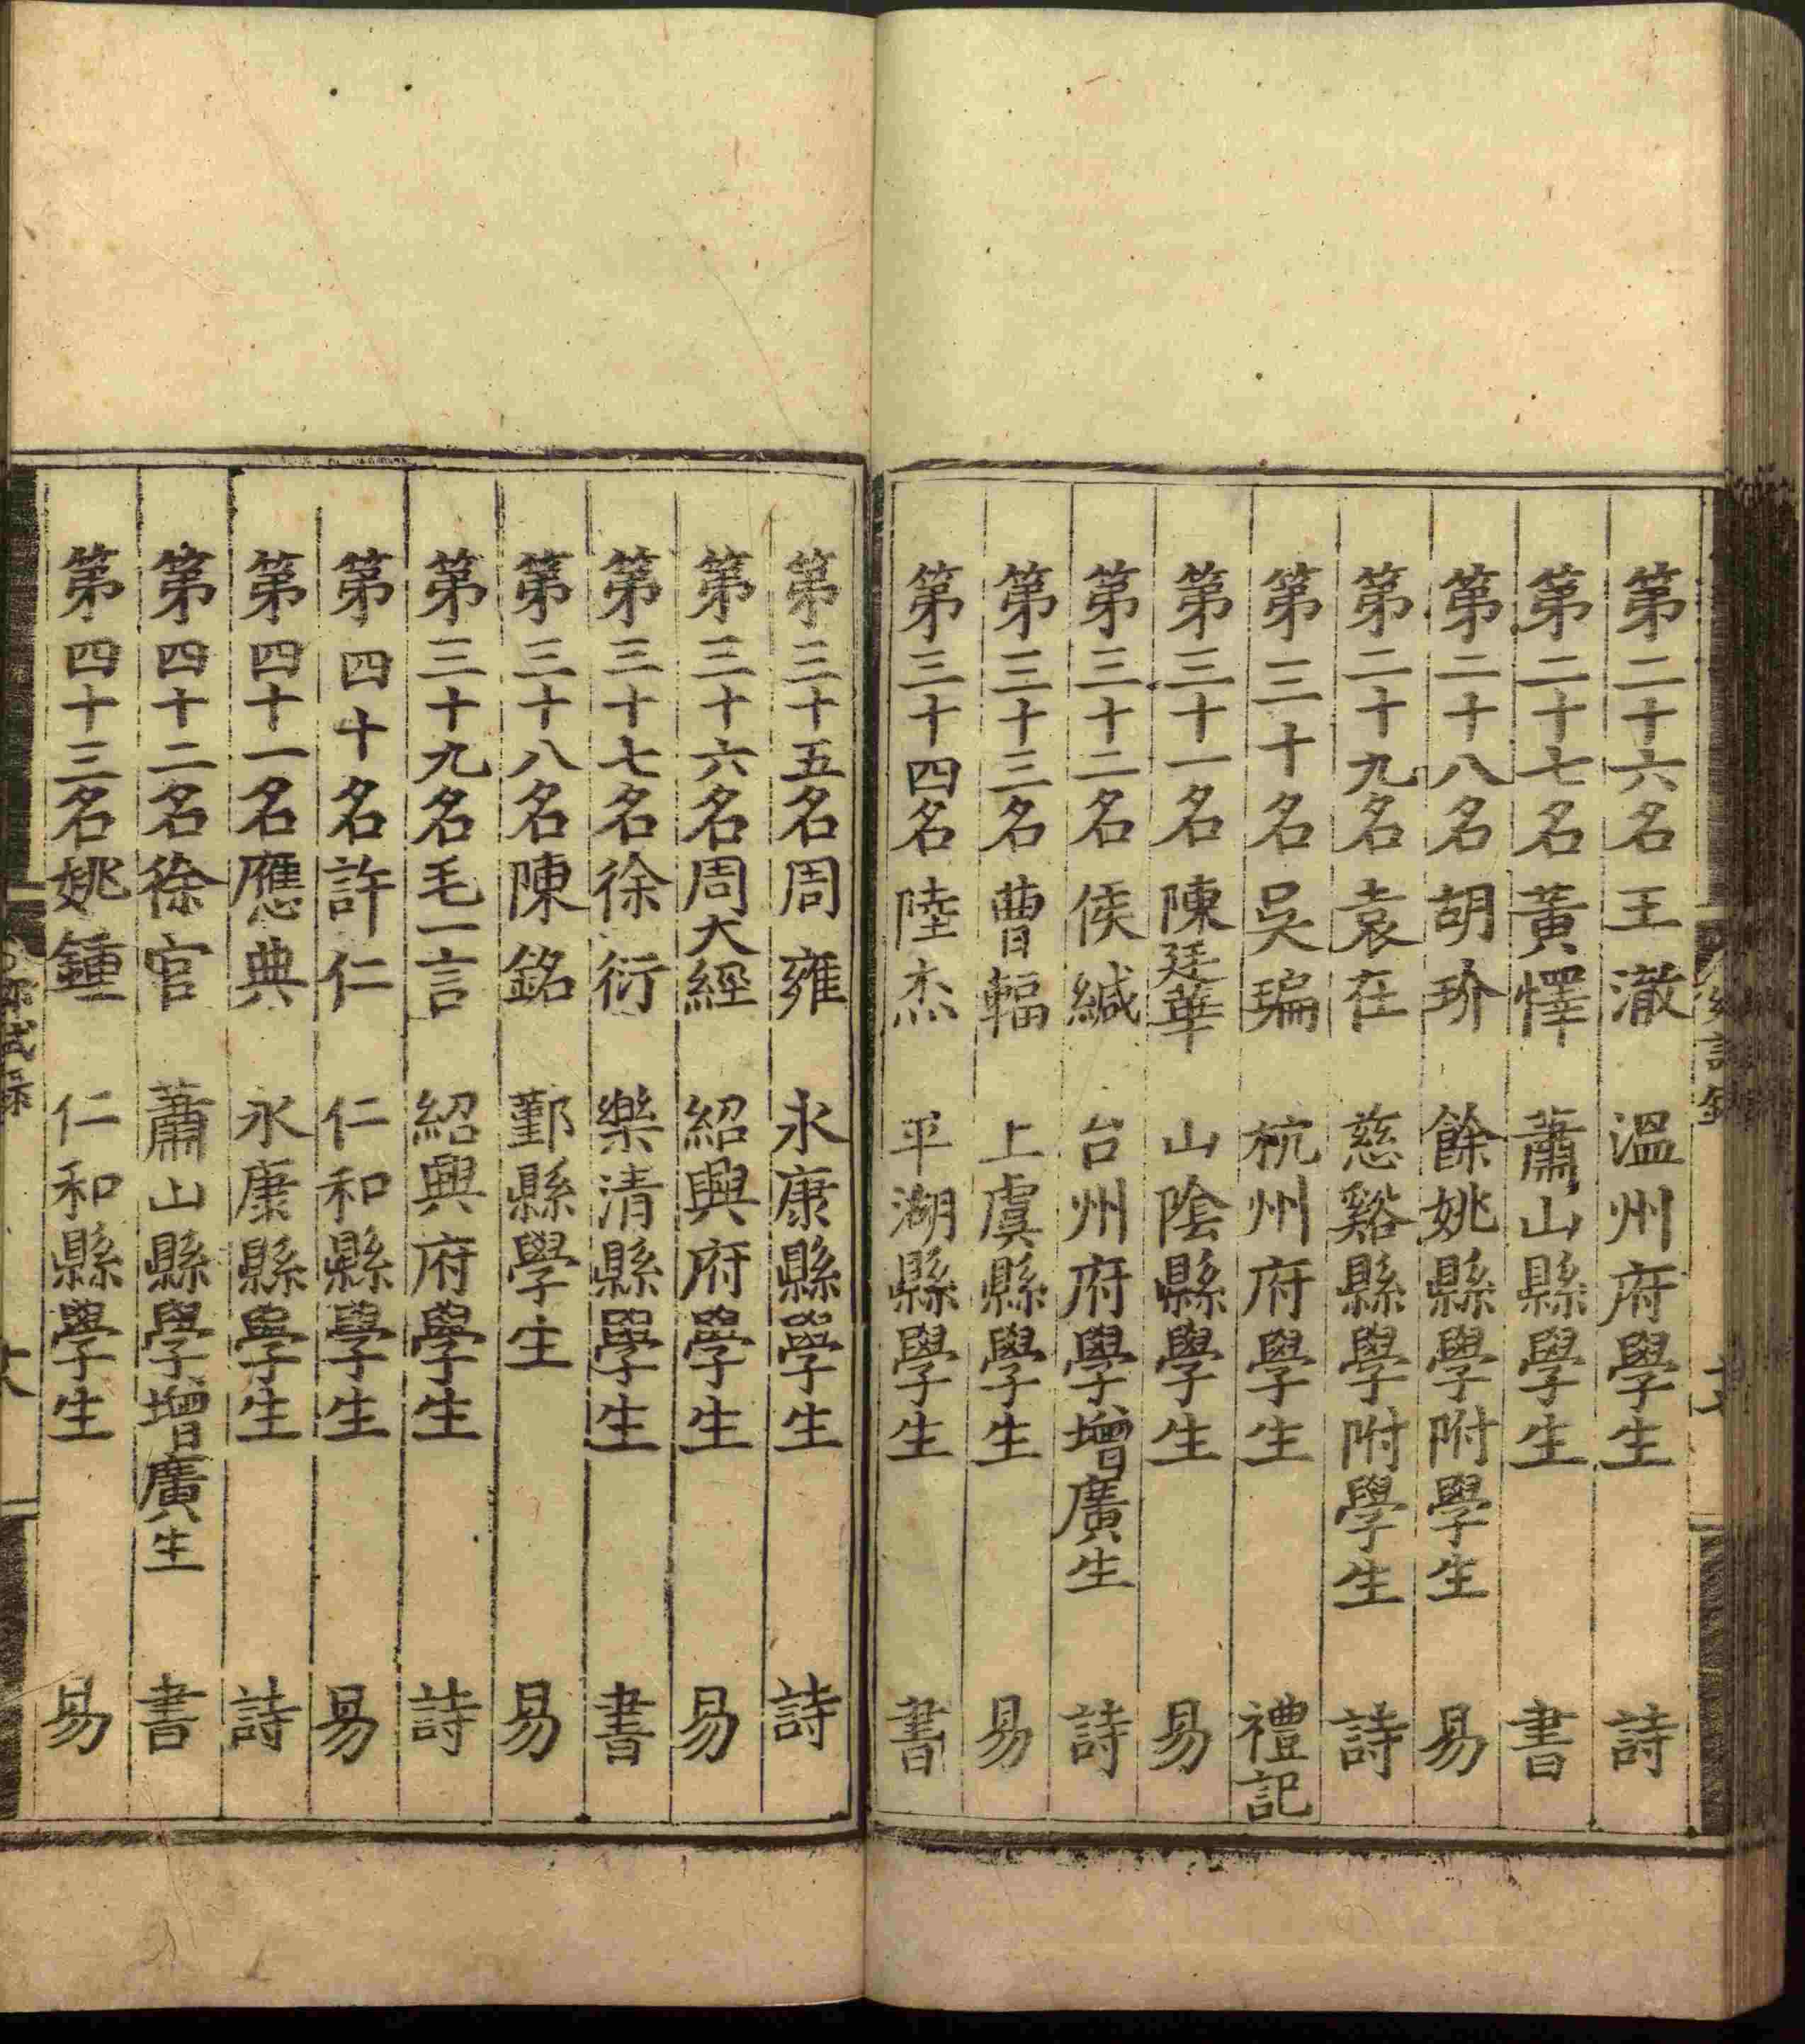 第二十六名王澈 溫州府學生 詩
第二十七名黃懌 蕭山縣學生 書
第二十八名胡玠 餘姚縣學附學生 易
第二十九名袁在 慈谿縣學附學生 詩
第三十名吳瑞 杭州府學生 禮記
第三十一名陳廷華 山陰縣學生 易
第三十二名侯緘 台州府學增廣生 詩
第三十三名曹輻 上虞縣學生 易
第三十四名陸杰 平湖縣學生 書
第三十五名周雍 永康縣學生 詩
第三十六名周大經 紹興府學生 易
第三十七名徐衍 樂清縣學生 書
第三十八名陳銘 鄞縣學生 易
第三十九名毛一言 紹興府學生 詩
第四十名許仁 仁和縣學生 易
第四十一名應典 永康縣學生 詩
第四十二名徐官 蕭山縣學增廣生 書
第四十三名姚鍾 仁和縣學生 易